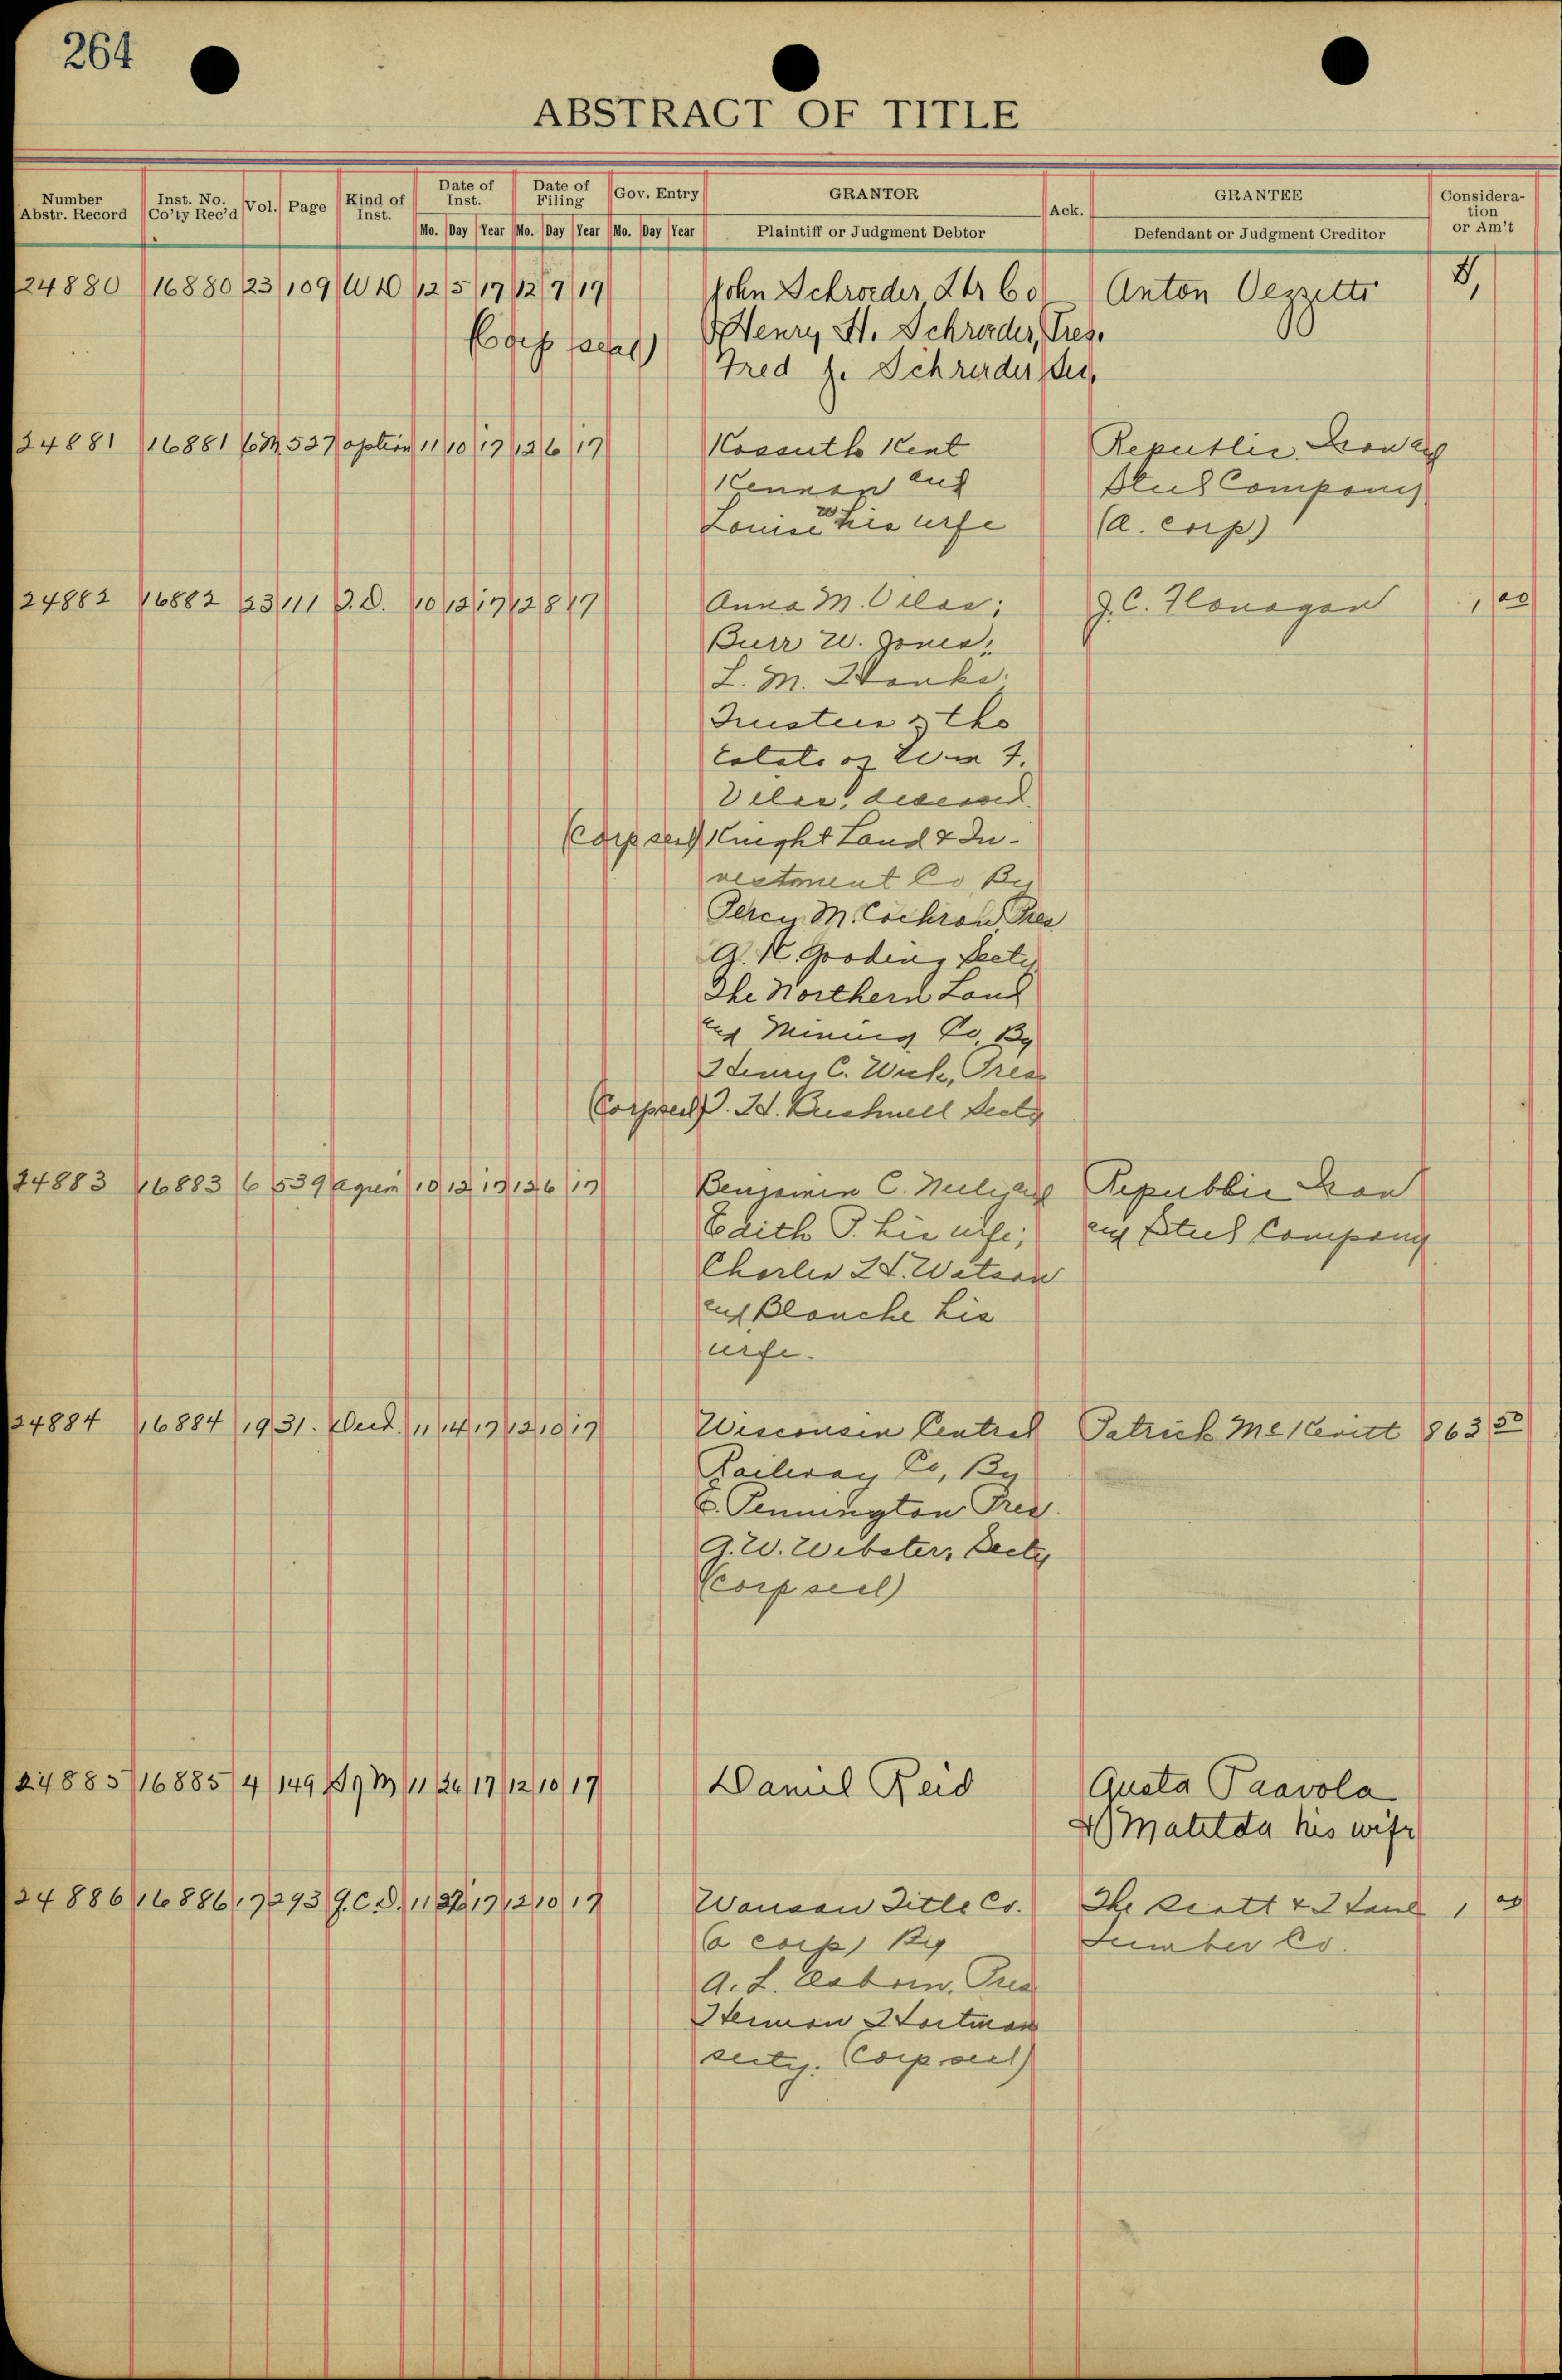 264
ABSTRACT OF TITLE
Number Abstr. Record Inst. No. Co'ty Rec'd Vol. Page Kind of Inst. Date of Inst. Date of Filing Gov. Entry GRANTOR Ack. GRANTEE Considera-tion or Am't
Mo. Day Year Mo. Day Year Mo. Day Year Plaintiff or Judgment Debtor Defendant or Judgment Creditor
24880 16880 23 109 W D 12 5 17 12 7 17 John Schroeder Lbr Co Anton Vezzetti
Henry H. Schroeder, Pres.
(Corp seal) Fred J. Schroeder Sec.
24881 16881 6M 537 option 11 10 17 12 6 17 Kossuth Kent Republic Iron and
Kennan and Steel Company
Louise W his wife (a. corp)
24882 16882 23 111 J.D. 10 12 17 12 8 17 Anna M. Vilas; J. C. Flanagan 1 00
Burr W. Jones,
L. M. Hanks,
Trustees of the
Estate of Wm F.
Vilas, deceased.
(Corp seal) Knight Land & In-
vestment Co By
Percy M. Cochran, Pres
A. K. Gooding Secty
The Northern Land
and Mining Co, By
Henry C. Wick, Pres
(Corp seal) D. H. Bushnell Secty
24883 16883 6 539 agrem 10 12 17 12 6 17 Benjamin C. Neely and Republic Iron
Edith P. his wife; and Steel Company
Charles H. Watson
and Blanche his
wife.
24884 16884 19 31. Deed. 11 14 17 12 10 17 Wisconsin Central Patrick McKevitt 863 50
Railway Co, By
E. Pennington Pres.
G. W. Webster, Secty
(corp seal)
24885 16885 4 149 11 26 17 12 10 17 Daniel Reid Gusta Paavola
& Matilda his wife
24886 16886 17 293 Q.C.D. 11 27 17 12 10 17 Wausau Title Co. The Scott & Howe 1 00
(a corp) By Lumber Co.
A. L. Osborn, Pres
Herman Hartman
secty. (Corp seal)